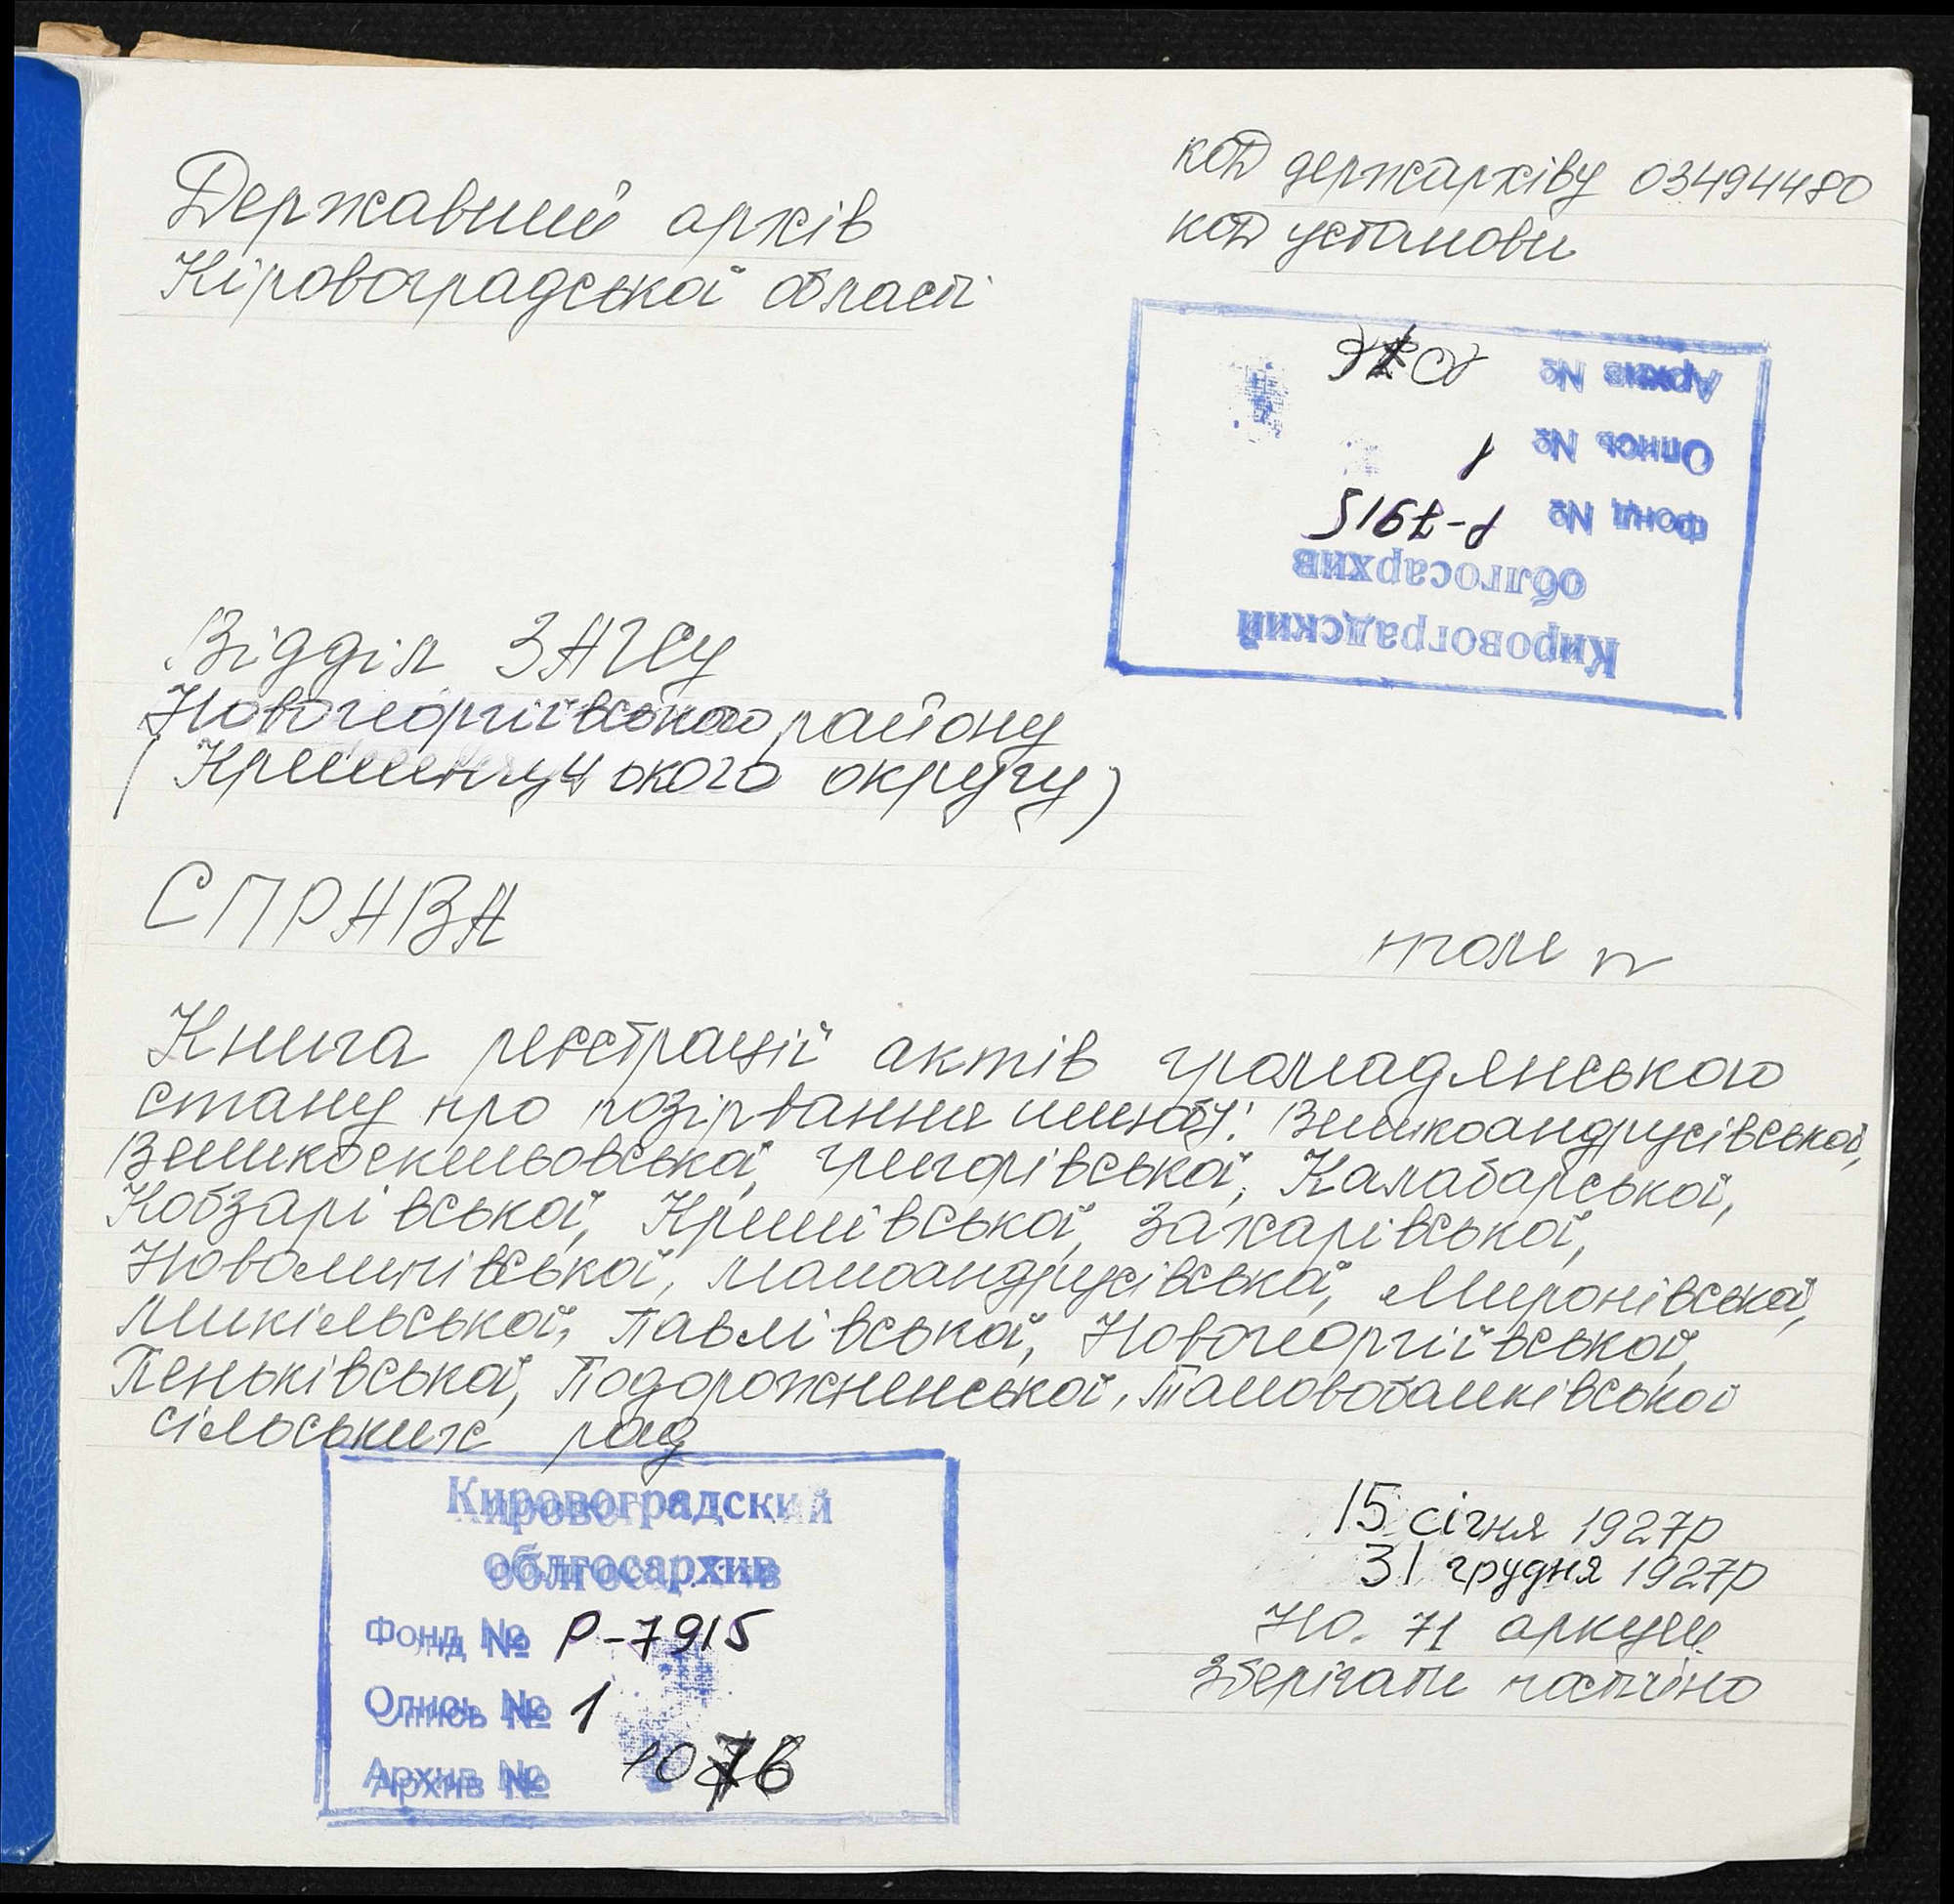 код держархіву 03494480
код установи
Державний архів
Кіровоградської області
Кировоградский
облгосархив
Фонд № Р-7915
Опись № 1
Архив №
Відділ ЗАГСу
Новогеоргіївського району
(Кременчуцького округу)
СПРАВА
том №
Книга реєстрації актів громадянського
стану про розірвання шлюбу: Великоандрусівської,
Великоскельовської, Григорівської, Калабарської,
Кобзарівської, Крилівської, Захарівської,
Новолипівської, Малоандрусівської, Миронівської,
Микільської, Павлівської, Новогеоргіївської,
Пеньківської, Подорожненської,
сільських рад
15 січня 1927р
31 грудня 1927р
На 71 аркуш
Зберігати постійно
Кировоградский
облгосархив
Фонд № Р-7915
Опись № 1
Архив № 1076